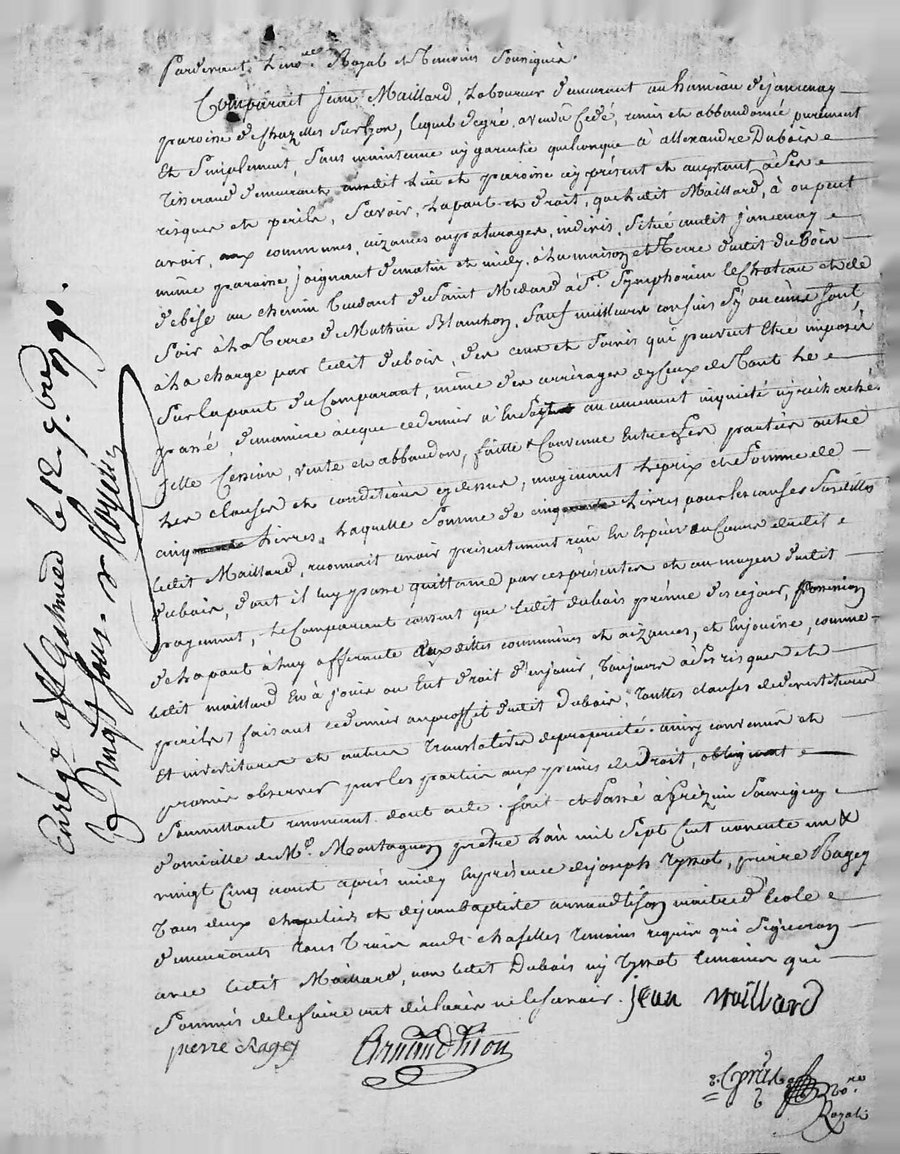 Pardevant Le no.re Royal et Temoins Soussignés
Comparait Jean Maillard, Laboureur demeurant au hameau de jancenay
paroisse de Chazelles Sur Lyon, lequel de gré, a vendu Cedé, remis et abbandonné purement
Et Simplement, Sans maintenue ny garentie quelconque à allexandre Dubois
Tisserand demeurant audit Lieu et paroisse cy présent et acceptant à Ses
risques et perils, Savoir, La part et droit, que ledit Maillard, à ou peut
avoir, aux communes, aizances ou paturages, indivis, Situé audit Jancenay
même paroisse, joignant de matin et midy, à la maison et Terre dudit duBois
de bize au chemin Tendant de Saint Medard à St. Symphorien le Chateau et de
Soir à la Terre de Mathieu Blanchon, Sauf meilleurs confins Sy aucuns Sont,
à la charge par ledit dubois, des cens et Servis qui peuvent Etre imposés
Sur la part du Comparant, même des arrérages d'yceux de Tout le
passé, de maniere à ce que ce dernier n'En Soit aucunement inquieté ny recherché.
Telle Cession, vente et abbandon, faitte & Convenue Entre les parties outre
Les clauses et conditions cy dessus, moyenant le prix et Somme de
cinq Livres, Laquelle Somme de cinq Livres pour les causes Susdittes
Ledit Maillard, reconnait avoir présentement reçu En Espèces au Cours dudit
dubois, dont il luy passe quittance par ces présentes et au moyen dudit
payement, Le Comparant consent que ledit dubois prenne dès ce jour, possession
de la part à luy afferente aux dittes communes et aizances, et En jouisse, comme
Ledit maillard En à jouie ou Eut droit d'en jouir, Toujours à Ses risques et
perils, faisant ce dernier au proffit dudit Dubois, Touttes clauses de devestitures
Et investitures et autres Translatives de propriété. ainsy convenu et
promis observer par les parties aux peines de Droit, obligeant
Soumettant renoncant dont acte. fait et Passé à
domicille de Mr. Montagnon prêtre L'an mil Sept Cent nonente un &
vingt Cinq aout après midy En présence de joseph pierre Ragey
Tous deux chapeliers et de jean baptiste arnaudthion maitre d'école
demeurants Tous Trois audit chaselles Temoins requis qui Signeront
avec ledit Maillard, non ledit Dubois ny Temoins que
Sommés de le faire ont déclarés ne le Savoir.
jean maillard
pierre Ragey
Arnaudthion
no.re
Royal
Enrég.é à St Galmier le 12 9.bre 1790.
R Vingt Sous.